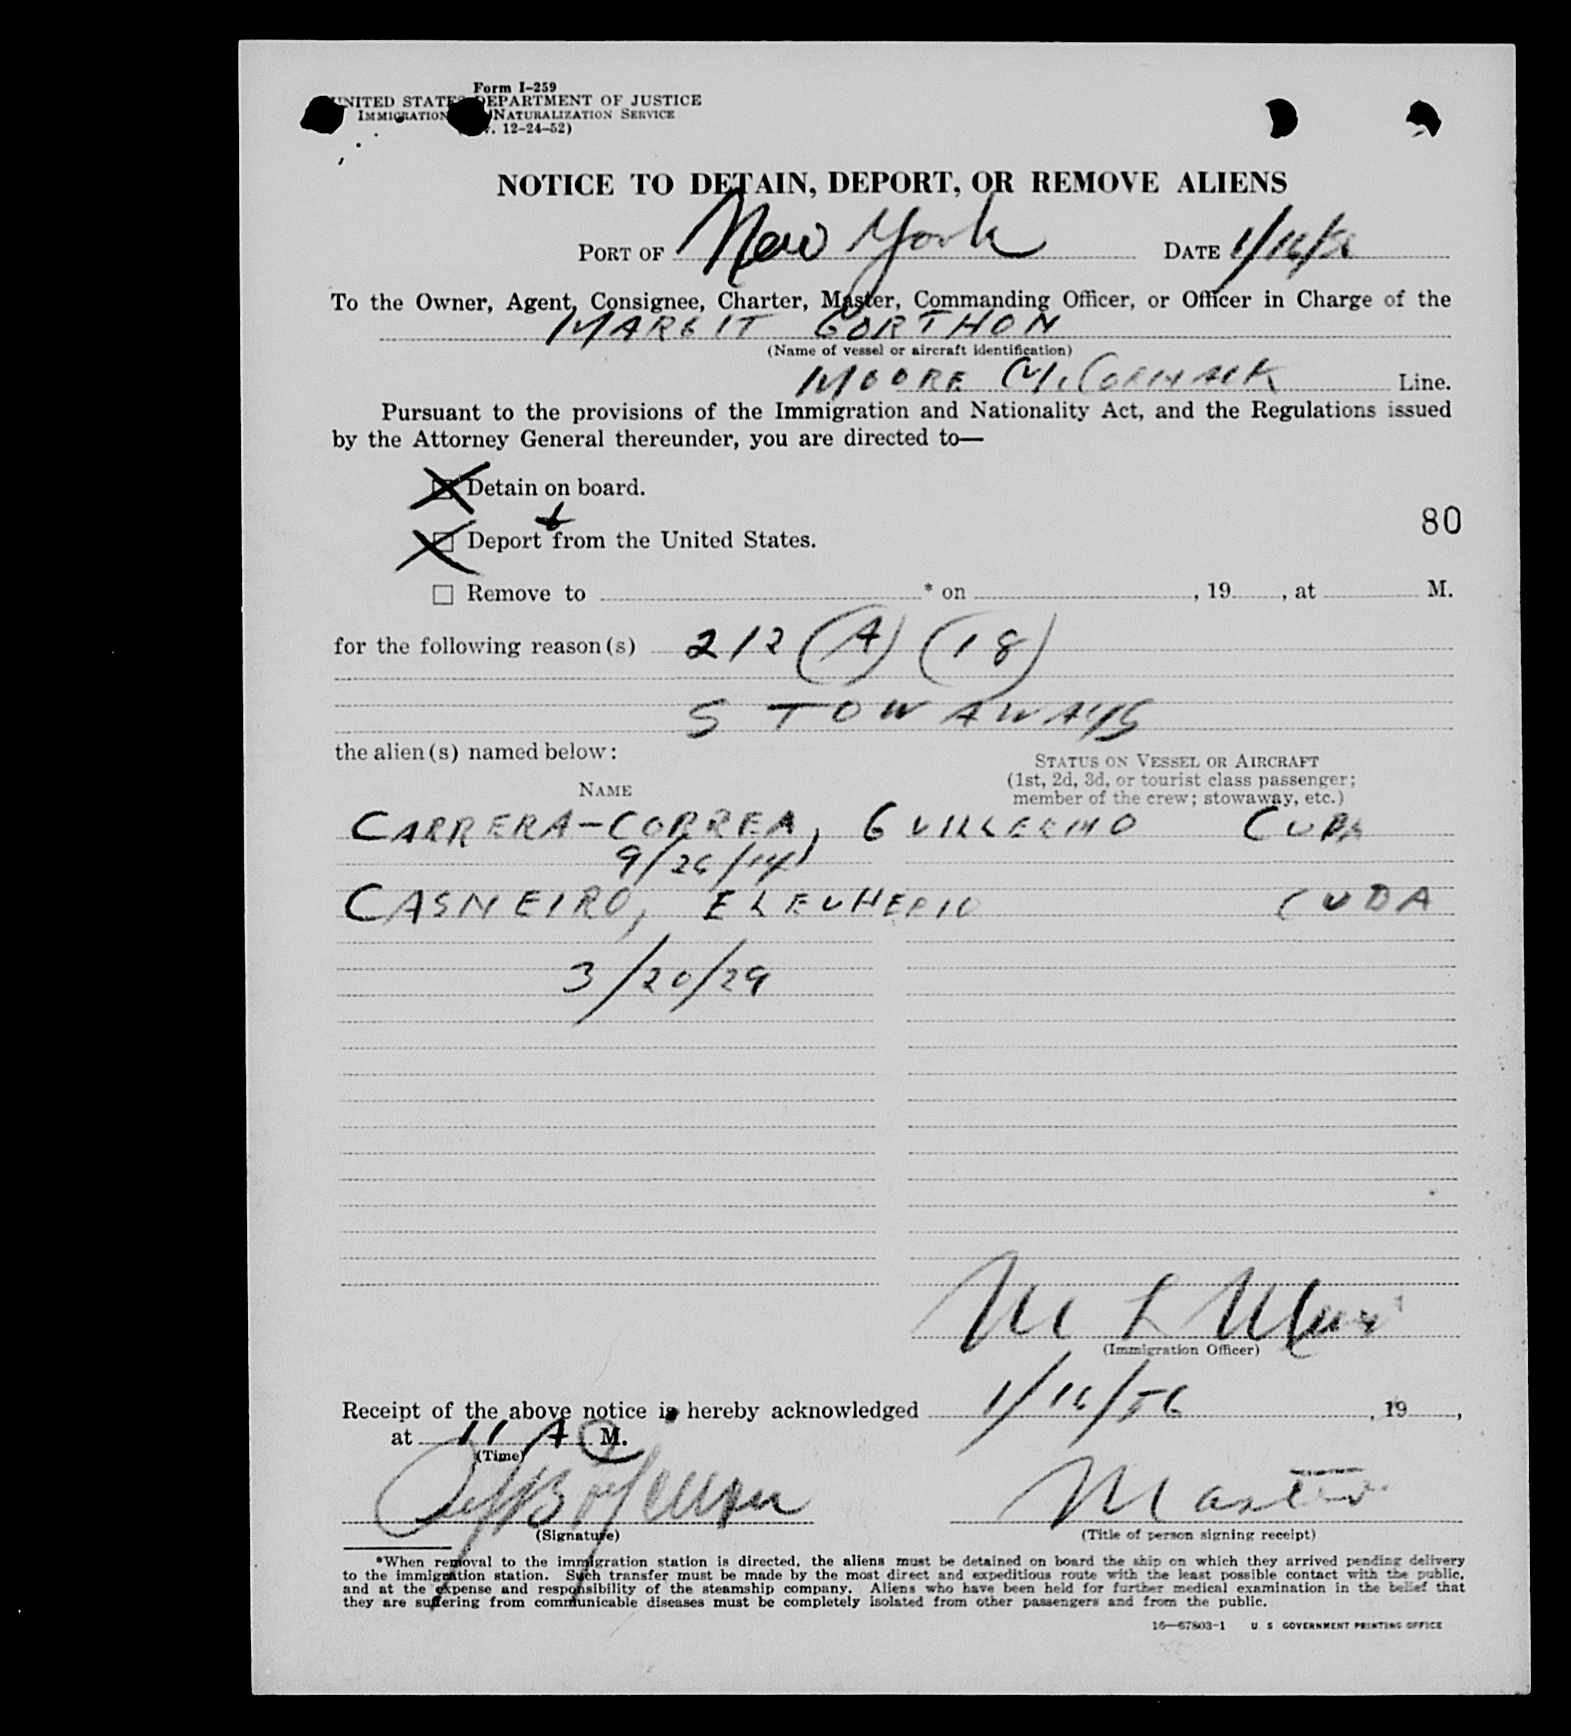 Form I-259
UNITED STATES DEPARTMENT OF JUSTICE
IMMIGRATION NATURALIZATION SERVICE
12-24-52)
NOTICE TO DETAIN, DEPORT, OR REMOVE ALIENS
PORT OF New York DATE 1/16/56
To the Owner, Agent, Consignee, Charter, Master, Commanding Officer, or Officer in Charge of the
MARGIT GORTHON
(Name of vessel or aircraft identification)
MOORE McCORMACK Line.
Pursuant to the provisions of the Immigration and Nationality Act, and the Regulations issued
by the Attorney General thereunder, you are directed to—
X Detain on board.
+
X Deport from the United States.
80
☐ Remove to * on , 19 , at M.
for the following reason(s) 212 (A) (18)
STOWAWAYS
the alien(s) named below:
STATUS ON VESSEL OR AIRCRAFT
(1st, 2d, 3d, or tourist class passenger;
member of the crew; stowaway, etc.)
NAME
CARRERA-CORREA, GUILLERMO CUBA
9/26/14
CASNEIRO, ELEUHERIO CUBA
3/20/29
M L
(Immigration Officer)
Receipt of the above notice is hereby acknowledged 1/16/56 , 19 ,
at 11 A M.
(Time)
Master
(Signature) (Title of person signing receipt)
*When removal to the immigration station is directed, the aliens must be detained on board the ship on which they arrived pending delivery
to the immigration station. Such transfer must be made by the most direct and expeditious route with the least possible contact with the public,
and at the expense and responsibility of the steamship company. Aliens who have been held for further medical examination in the belief that
they are suffering from communicable diseases must be completely isolated from other passengers and from the public.
16—67803-1 U S GOVERNMENT PRINTING OFFICE